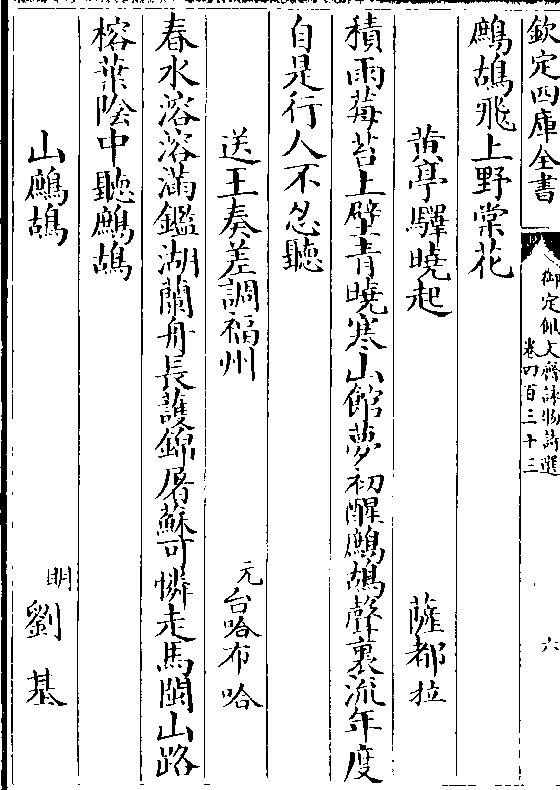 欽定四庫全書
御定佩文齋詠物詩選
卷四百三十三
六
鷓鴣飛上野棠花
黄亭驛曉起
薩都拉
積雨莓苔上壁青曉寒山館夢初醒鷓鴣聲裏流年度
自是行人不忍聽
送王奏差調福州
元台哈布哈
春水溶溶滿鑑湖蘭舟長護錦屠蘇可憐走馬閩山路
榕葉陰中聽鷓鴣
山鷓鴣
明劉基